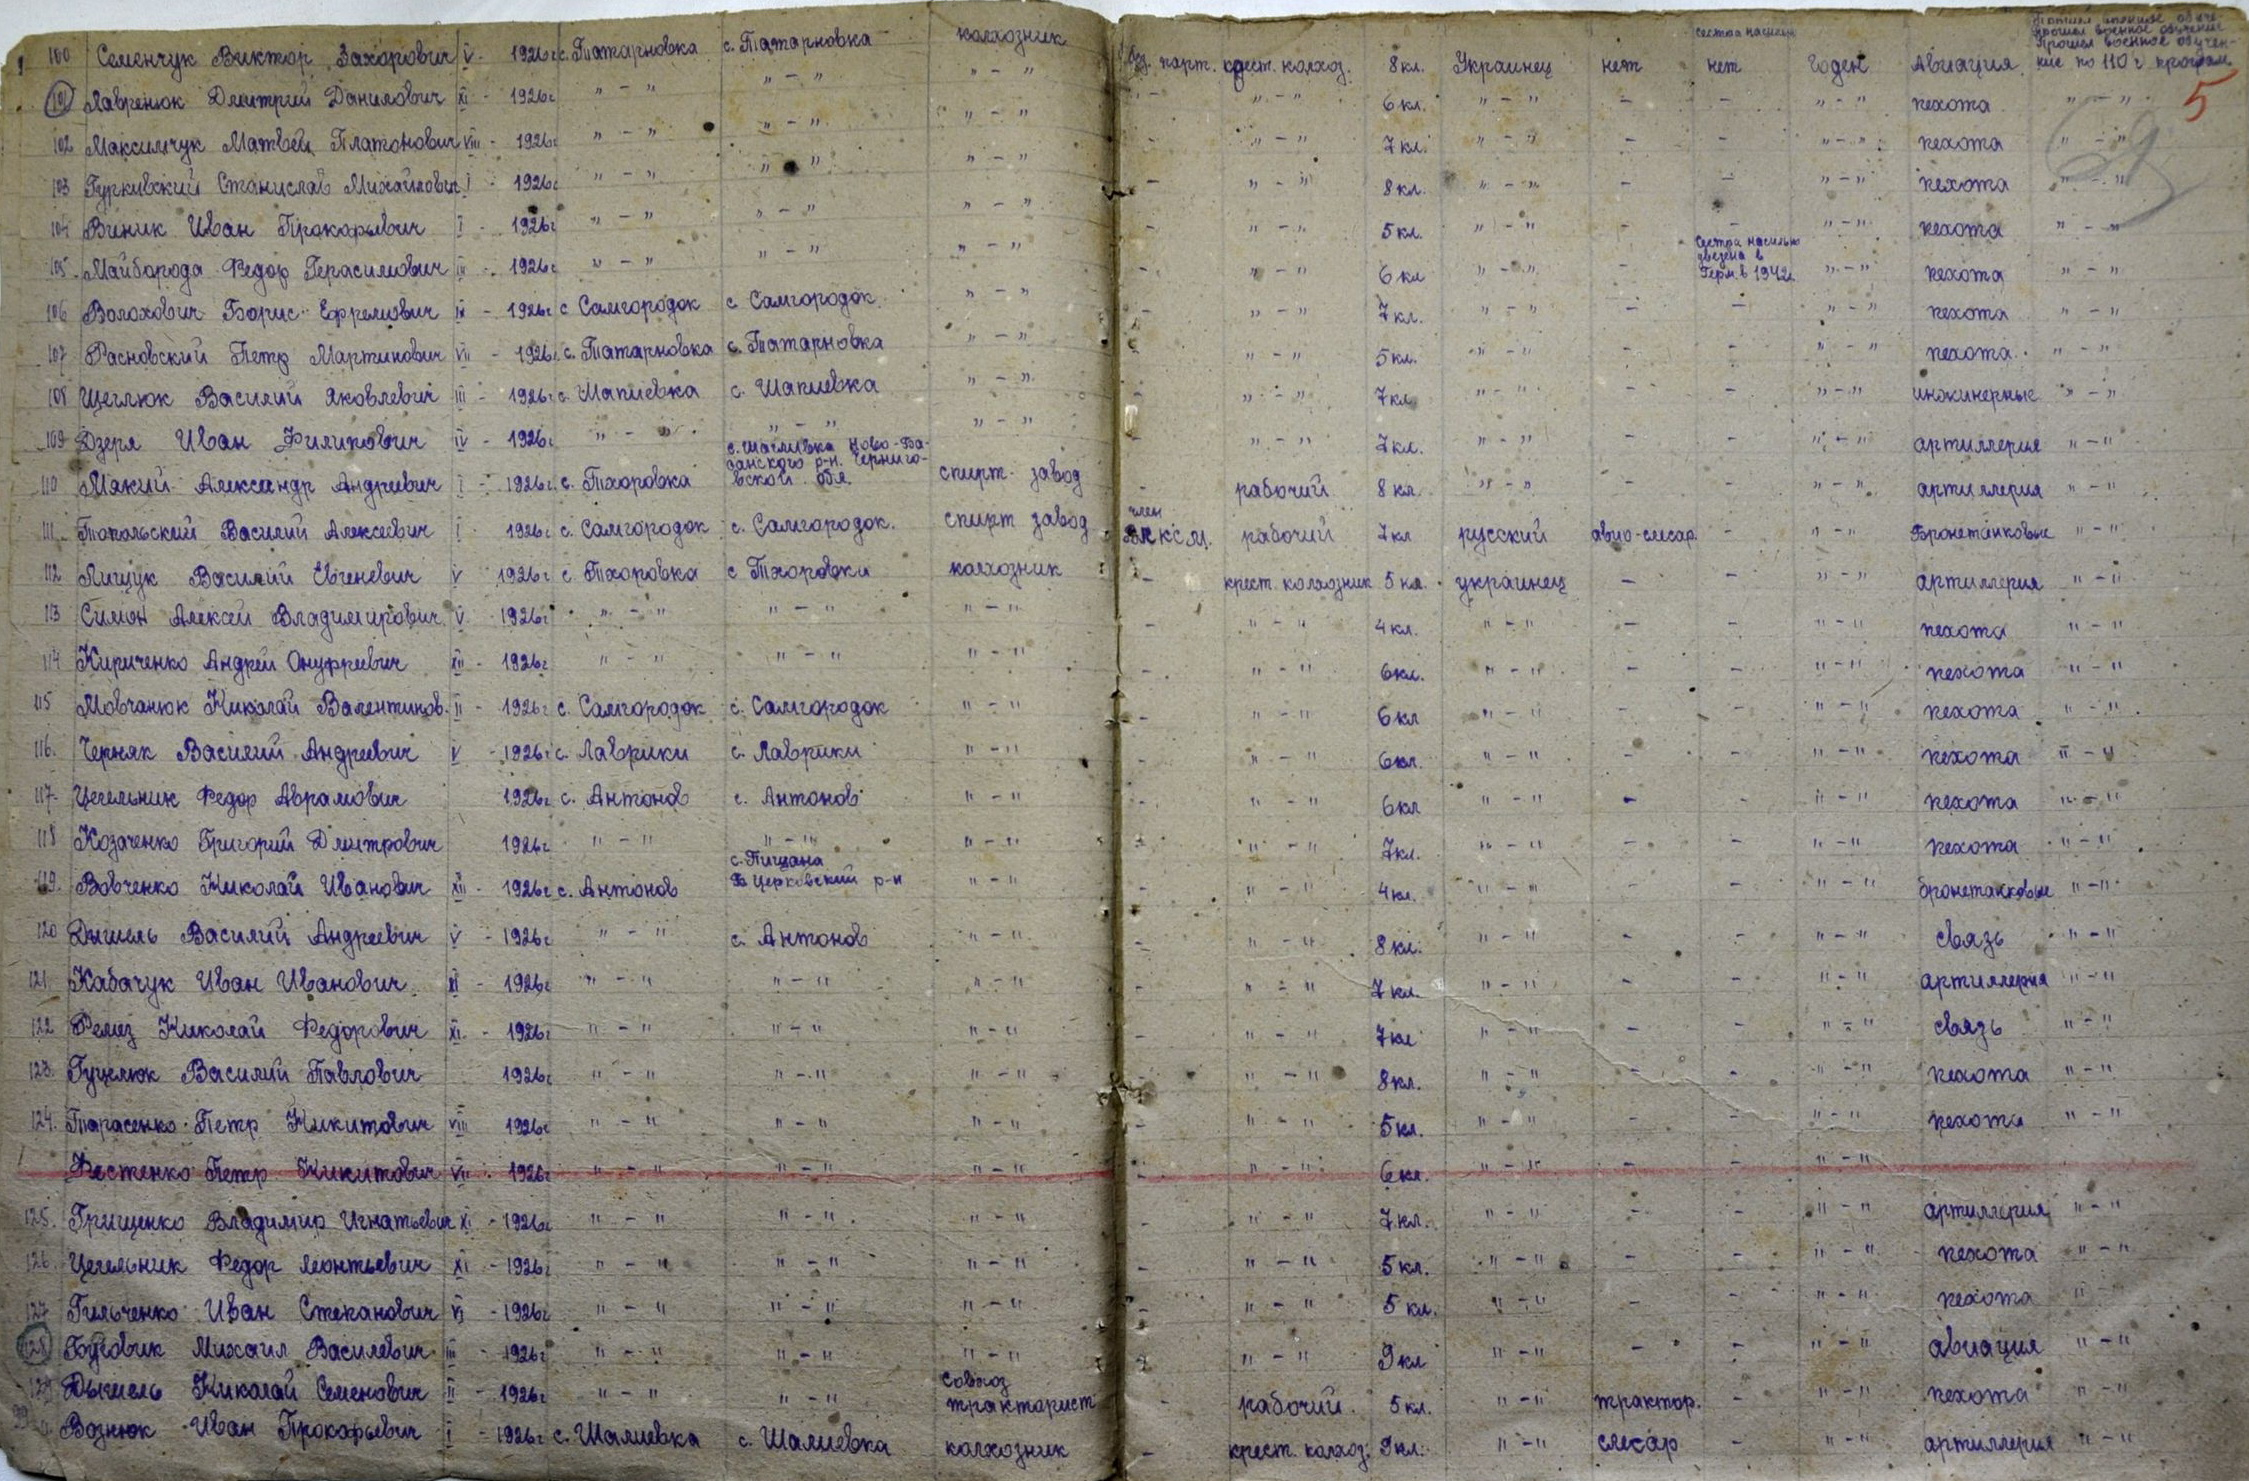 100 Семенчук Виктор Захорович V - 1926г с. Татарновка с. Татарновка колхозник без. парт. крест. колхоз. 8 кл. Украинец нет нет годен Авиация Прошел военное обучение по 110 ч програм.
101 Лавренюк Дмитрий Данилович XI - 1926г " - " " - " " - " - " - " 6 кл. " - " - - " - " пехота " - " 5
102 Максимчук Матвей Платонович VIII - 1926г " - " " - " " - " - " - " 7 кл. " - " - - " - " пехота " - "
103 Станислав Михайлович I - 1926г " - " " - " " - " - " - " 8 кл. " - " - - " - " пехота " - "
104 Виник Иван Прокофьевич I - 1926г " - " " - " " - " - " - " 5 кл. " - " - - " - " пехота " - "
105 Майборода Федор Герасимович III - 1926г " - " " - " " - " - " - " 6 кл " - " - Сестра насильно увезена в Герм. в 1942г " - " пехота " - "
106 Волохович Борис Ефремович IX - 1926г с Самгородок с Самгородок " - " - " - " 7 кл. " - " - - " - " пехота " - "
107 Расновский Петр Мартинович VII - 1926г с. Татарновка с. Татарновка " - " - " - " 5 кл. " - " - - " - " пехота " - "
108 Щеглюк Василий Яковлевич III - 1926г с. Шапиевка с. Шапиевка " - " - " - " 7 кл " - " - - " - " инжинерные " - "
109 Дзеря Иван Филипович IV - 1926г " - " " - " " - " - " - " 7 кл. " - " - - " - " артиллерия " - "
110 Мякий Александр Андреевич I - 1926г с. Тхоровка Ново-Басанского р-н. Черниговской обл. спирт завод - рабочий 8 кл " - " - - " - " артиллерия " - "
111 Топольский Василий Алексеевич I - 1926г с. Самгородок с. Самгородок. спирт завод член ВЛКСМ. рабочий 7 кл русский авио-слесар. - " - " Бронетанковые " - "
112 Лищук Василий Евгеневич V - 1926г с Тхоровка с Тхоровка колхозник - крест. колхозник 5 кл. украинец - - " - " артиллерия " - "
113 Симон Алексей Владимирович V - 1926г " - " " - " " - " - " - " 4 кл. " - " - - " - " пехота " - "
114 Кириченко Андрей Онуфреевич XII - 1926г " - " " - " " - " - " - " 6 кл. " - " - - " - " пехота " - "
115 Мовчанюк Николай Валентинов. II - 1926г с. Самгородок с. Самгородок " - " - " - " 6 кл " - " - - " - " пехота " - "
116. Черняк Василий Андреевич V - 1926г с. Лаврики с. Лаврики " - " - " - " 6 кл. " - " - - " - " пехота " - "
117 Цегельник Федор Аврамович 1926г с. Антонов с. Антонов " - " - " - " 6 кл " - " - - " - " пехота " - "
118 Козаченко Григорий Дмитрович 1926г " - " " - " " - " - " - " 7 кл. " - " - - " - " пехота " - "
119. Вовченко Николай Иванович XII - 1926г с. Антонов с. Пищана Б Церковский р-н " - " - " - " 4 кл. " - " - - " - " бронетанковые " - "
120 Дышель Василий Андреевич V - 1926г " - " с. Антонов " - " - " - " 8 кл. " - " - - " - " связь " - "
121 Кабачук Иван Иванович XI - 1926г " - " " - " " - " - " - " 7 кл. " - " - - " - " артиллерия " - "
122 Ремез Николай Федорович XI - 1926г " - " " - " " - " - " - " 7 кл " - " - - " - " связь " - "
123. Гуцелюк Василий Павлович 1926г " - " " - " " - " - " - " 8 кл. " - " - - " - " пехота " - "
124. Тарасенко Петр Никитович VIII - 1926г " - " " - " " - " - " - " 5 кл. " - " - - " - " пехота " - "
Петр Никитович VII - 1926г " - " " - " " - " - " - " 6 кл. " - " - - " - "
125. Грищенко Владимир Игнатьевич XI - 1926г " - " " - " " - " - " - " 7 кл. " - " - - " - " артиллерия " - "
126. Цегельник Федор Леонтьевич XI - 1926г " - " " - " " - " - " - " 5 кл. " - " - - " - " пехота " - "
127 Гильченко Иван Степанович VI - 1926г " - " " - " " - " - " - " 5 кл. " - " - - " - " пехота " - "
128 Буговик Михаил Василевич III - 1926г " - " " - " " - " - " - " 9 кл " - " - - " - " авиация " - "
129 Дышель Николай Семенович II - 1926г " - " " - " совхоз тракторист - рабочий. 5 кл. " - " трактор. - " - " пехота " - "
Вознюк Иван Прокофьевич I - 1926г с. Шалиевка с. Шалиевка колхозник - крест. колхоз. 9 кл. " - " слесар - " - " артиллерия " - "